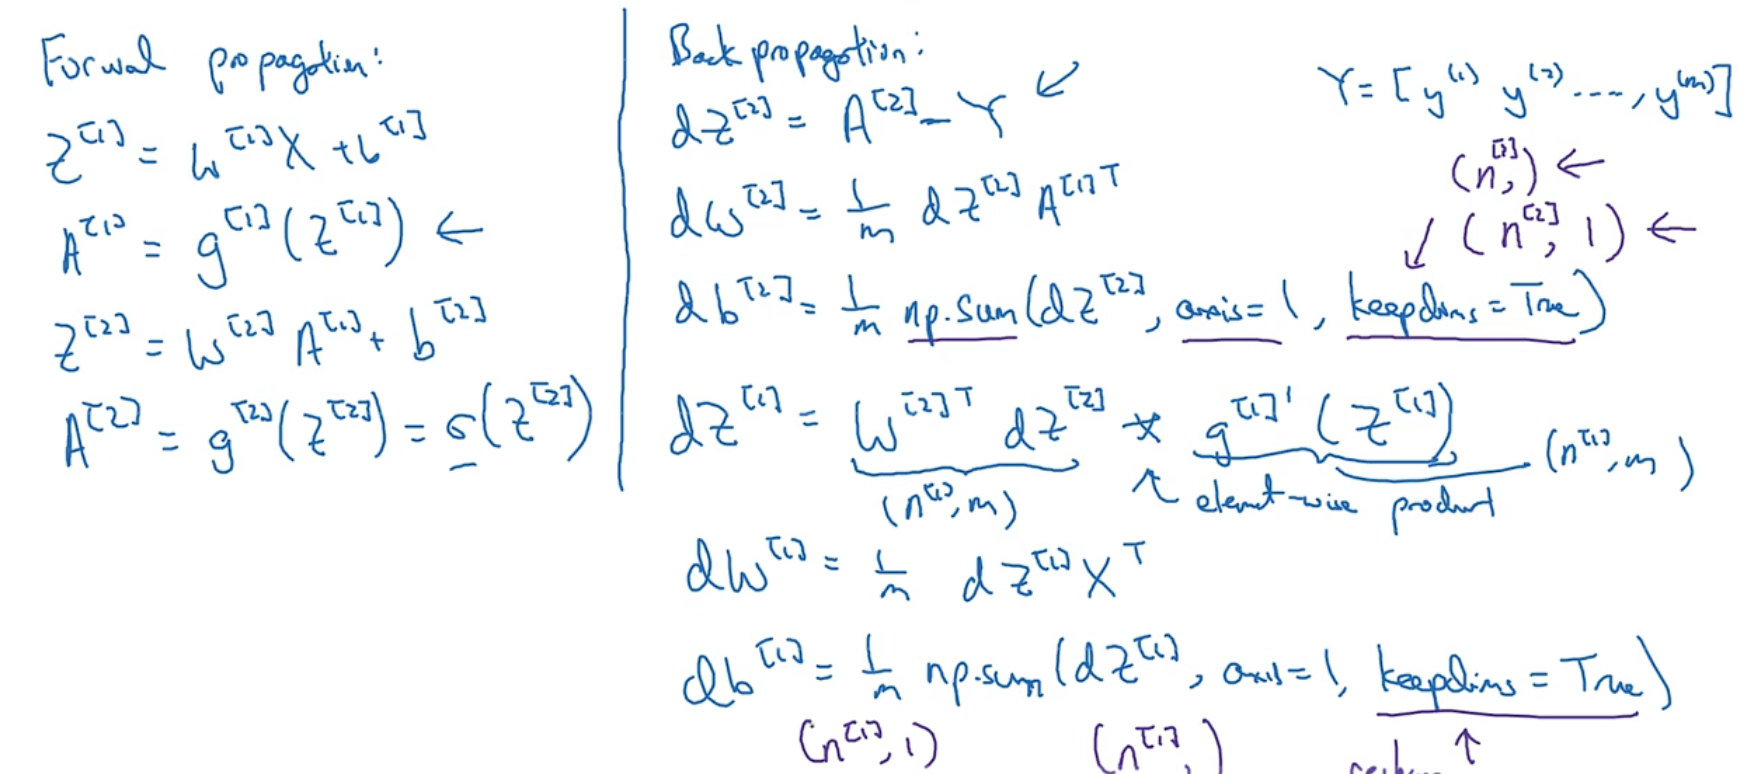 Forwal propagation:
Z^[1] = W^[1]X + b^[1]
A^[1] = g^[1](Z^[1]) ←
Z^[2] = W^[2] A^[1] + b^[2]
A^[2] = g^[2](Z^[2]) = σ(Z^[2])
Back propagation:
dZ^[2] = A^[2] - Y ↙
dW^[2] = 1/m dZ^[2] A^[1]T
db^[2] = 1/m np.sum(dZ^[2], axis=1, keepdims=True)
dZ^[1] = W^[2]T dZ^[2] * g^[1]'(Z^[1])
(n^[1], m) ↖ element-wise product (n^[1], m)
dW^[1] = 1/m dZ^[1] X^T
db^[1] = 1/m np.sum(dZ^[1], axis=1, keepdims=True)
(n^[1], 1) (n^[1],) ↑
Y = [y^(1) y^(2) ...., y^(m)]
(n^[2],) ←
↙ (n^[2], 1) ←